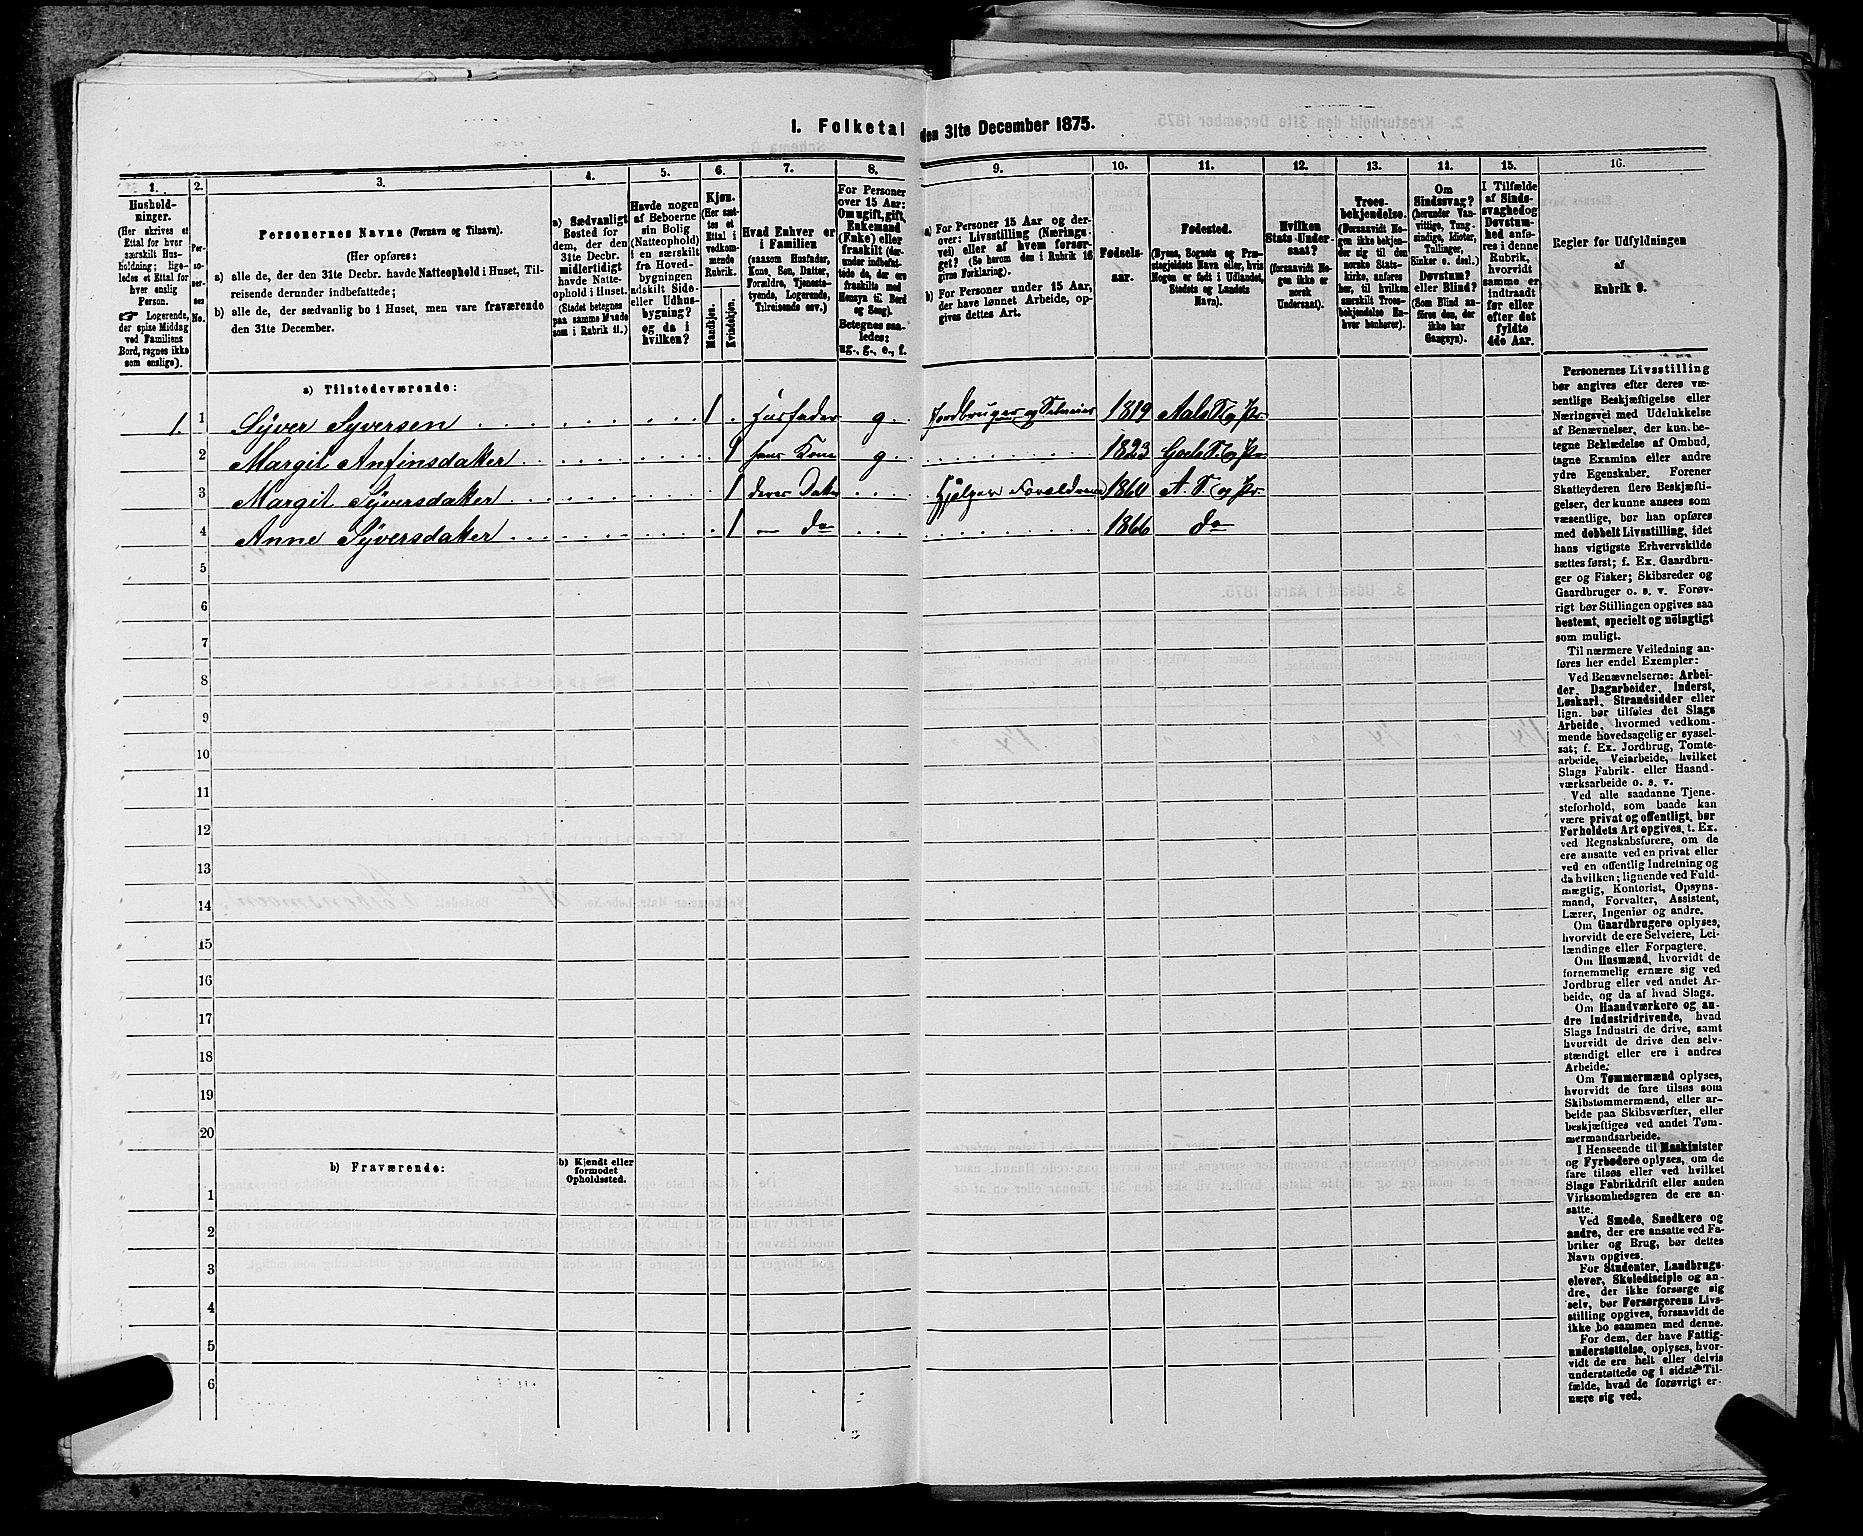 1. Folketal den 31te December 1875.
1.
2.
3.
4.
5.
6.
7.
8.
9.
10.
11.
12.
13.
14.
15.
16.
Hushold-
ninger.
(Her skrives et
Ettal for hver
særskilt Hus-
holdning; lige-
ledes et Ettal for
hver enslig
Person.
☞ Logerende,
der spise Middag
ved Familiens
Bord, regnes ikke
som enslige).
Per-
so-
ner-
nes
No.
Personernes Navne (Fornavn og Tilnavn).
(Her opføres:
a) alle de, der den 31te Decbr. havde Natteophold i Huset, Til-
reisende derunder indbefattede;
b) alle de, der sædvanlig bo i Huset, men vare fraværende
den 31te December.
a) Sædvanligt
Bosted for
dem, der den
31te Decbr.
midlertidigt
havde Natte-
ophold i Huset.
(Stedet betegnes
paa samme Maade
som i Rubrik 11.)
Havde nogen
af Beboerne
sin Bolig
(Natteophold)
i en særskilt
fra Hoved-
bygningen
adskilt Side-
eller Udhus-
bygning?
og da i
hvilken?
Kjøn.
(Her sæt-
tes et
Ettal i
vedkom-
mende
Rubrik.
Mandkjøn.
Kvindekjøn.
Hvad Enhver er
i Familien
(saasom Husfader,
Kone, Søn, Datter,
Forældre, Tjeneste-
tyende, Logerende,
Tilreisende osv.)
For Personer
over 15 Aar:
Om ugift, gift,
Enkemand
(Enke) eller
fraskilt (der-
under indbefat-
tede de, der ere
fraskilte med
Hensyn til Bord
og Seng).
Betegnes saa-
ledes:
ug., g., e., f.
a) For Personer 15 Aar og der-
over: Livsstilling (Nærings-
vei) eller af hvem forsør-
get? (Se herom den i Rubrik 16
givne Forklaring).
b) For Personer under 15 Aar,
der have lønnet Arbeide, op-
gives dettes Art.
Fødsels-
aar.
Fødested.
(Byens, Sognets og Præ-
stegjeldets Navn eller, hvis
Nogen er født i Udlandet,
Stedets og Landets
Navn).
Hvilken
Stats Under-
saat?
(forsaavidt No-
gen ikke er
norsk
Undersaat).
Troes-
bekjendelse.
(Forsaavidt No-
gen ikke bekjen-
der sig til den
norske Stats-
kirke, anføres
her, til hvilken
særskilt Troes-
bekjendelse En-
hver henhører).
Om
Sindssvag?
(herunder Van-
vittige, Tung-
sindige, Idioter,
Tullinger,
Sinker o. desl.).
Døvstum?
eller Blind?
(Som Blind an-
føres den, der
ikke har
Gangsyn).
I Tilfælde
af Sinds-
svaghed og
Døvstum-
hed anfø-
res i denne
Rubrik,
hvorvidt
samme er
indtraadt
før eller
efter det
fyldte
4de Aar.
Regler for Udfyldningen
af
Rubrik 9.
a) Tilstedeværende:
1. 1 Syver Syversen 1 Husfader g. Jordbruger og Selveier 1819 Aals S. og Pr.
2 Margit Anfinsdatter 1 hans Kone g. 1823 Gols S. og Pr.
3 Margit Syversdatter 1 deres Datter Hjelper Forældrene 1860 A. S. og Pr.
4 Anne Syversdatter 1 — do 1866 do
5
6
7
8
9
10
11
12
13
14
15
16
17
18
19
20
b) Fraværende:
b) Kjendt eller
formodet
Opholdssted.
1
2
3
4
5
6
Personernes Livsstilling
bør angives efter deres væ-
sentlige Beskjæftigelse eller
Næringsvei med Udelukkelse
af Benævnelser, der kun be-
tegne Beklædelse af Ombud,
tagne Examina eller andre
ydre Egenskaber. Forener
Skatteyderen flere Beskjæfti-
gelser, der kunne ansees som
væsentlige, bør han opføres
med dobbelt Livsstilling, idet
hans vigtigste Erhvervskilde
sættes først; f. Ex. Gaardbru-
ger og Fisker; Skibsreder og
Gaardbruger o. s. v. Forøv-
rigt bør Stillingen opgives saa
bestemt, specielt og nöiagtigt
som muligt.
Til nærmere Veiledning an-
føres her endel Exempler:
Ved Benævnelserne: Arbei-
der, Dagarbeider, Inderst,
Løskarl, Strandsidder eller
lign. bør tilføies det Slags
Arbeide, hvormed vedkom-
mende hovedsagelig er syssel-
sat; f. Ex. Jordbrug, Tomte-
arbeide, Veiarbeide, hvilket
Slags Fabrik- eller Haand-
værksarbeide o. s. v.
Ved alle saadanne Tjene-
steforhold, som baade kan
være privat og offentligt, bør
Forholdets Art opgives, t. Ex.
ved Regnskabsførere, om de
ere ansatte ved en privat eller
ved en offentlig Indretning og
da hvilken; lignende ved Fuld-
mægtig, Kontorist, Opsyns-
mand, Forvalter, Assistent,
Lærer, Ingeniør og andre.
Om Gaardbrugere oplyses,
hvorvidt de ere Selveiere, Lei-
lændinge eller Forpagtere.
Om Husmænd, hvorvidt de
fornemmelig ernære sig ved
Jordbrug eller ved andet Ar-
beide, og da af hvad Slags.
Om Haandværkere og an-
dre Industridrivende, hvad
Slags Industri de drive, samt
hvorvidt de drive den selv-
stændigt eller ere i andres
Arbeide.
Om Tømmermænd oplyses,
hvorvidt de fare tilsøs som
Skibstømmermænd, eller ar-
beide paa Skibsværfter, eller
beskjæftiges ved andet Tøm-
mermandsarbeide.
I Henseende til Maskinister
og Fyrbødere oplyses, om de
fare tilsøs eller ved hvilket
Slags Fabrikdrift eller anden
Virksomhedsgren de ere an-
satte.
Ved Smede, Snedkere og
andre, der ere ansatte ved Fa-
briker og Brug, bør dettes
Navn opgives.
For Studenter, Landbrugs-
elever, Skoledisciple og an-
dre, der ikke forsørge sig
selv, bør Forsørgerens Livs-
stilling opgives, forsaavidt de
ikke bo sammen med denne.
For dem, der have Fattig-
understøttelse, oplyses, hvor-
vidt de ere helt eller delvis
understøttede og i sidste Til-
fælde, hvad de forøvrigt er-
nære sig ved.